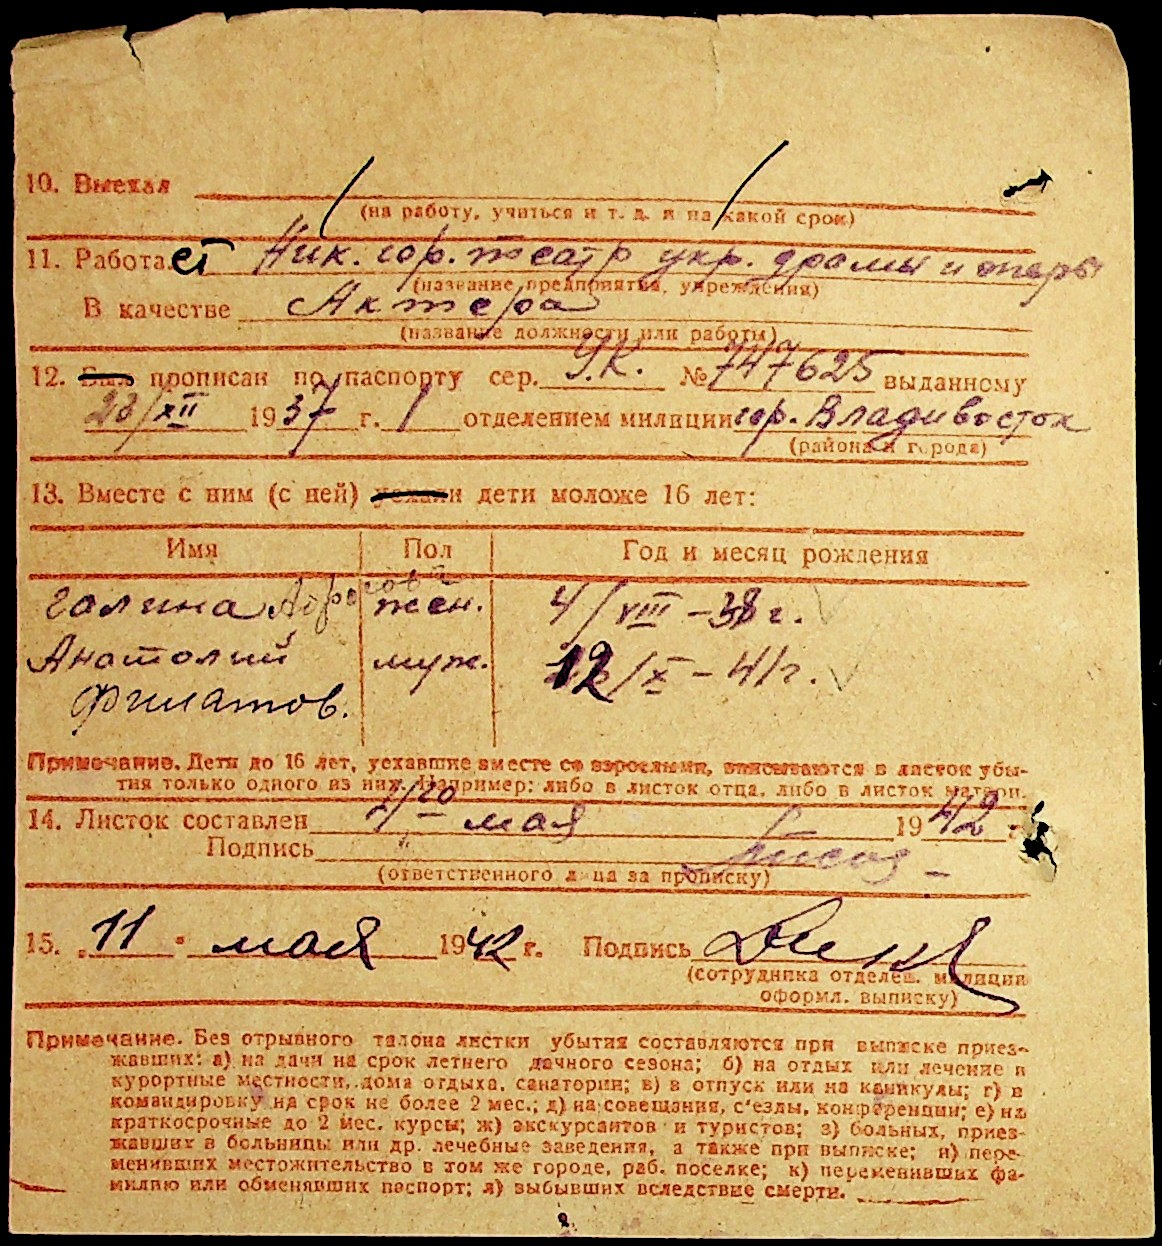 10. Выехал
(на работу, учиться и т. д. и на какой срок)
11. Работает Ник. гор. театр укр. драмы и оперы
(название предприятия, учреждения)
В качестве Актера
(название должности или работы)
12. Был прописан по паспорту сер. У.К. № 747625 выданному
23/XII 1937 г. 1 отделением милиции гор. Владивосток
(района и города)
13. Вместе с ним (с ней) уехали дети моложе 16 лет:
Имя Пол Год и месяц рождения
Галина жен. 4/VIII – 38 г.
Анатолий муж. 12/X – 41 г.
Филатов.
Примечание. Дети до 16 лет, уехавшие вместе со взрослыми, вписываются в листок убы-
тия только одного из них. Например: либо в листок отца, либо в листок матери.
14. Листок составлен мая 1942
Подпись
(ответственного лица за прописку)
15. „ 11 " мая 1942 г. Подпись
(сотрудника отделен. милиции
оформл. выписку)
Примечание. Без отрывного талона листки убытия составляются при выписке приез-
жавших: а) на дачи на срок летнего дачного сезона; б) на отдых или лечение в
курортные местности, дома отдыха, санатории; в) в отпуск или на каникулы; г) в
командировку на срок не более 2 мес.; д) на совещания, с'езды, конференции; е) на
краткосрочные до 2 мес. курсы; ж) экскурсантов и туристов; з) больных, приез-
жавших в больницы или др. лечебные заведения, а также при выписке; и) пере-
менивших местожительство в том же городе, раб. поселке; к) переменивших фа-
милию или обменявших паспорт; л) выбывших вследствие смерти.